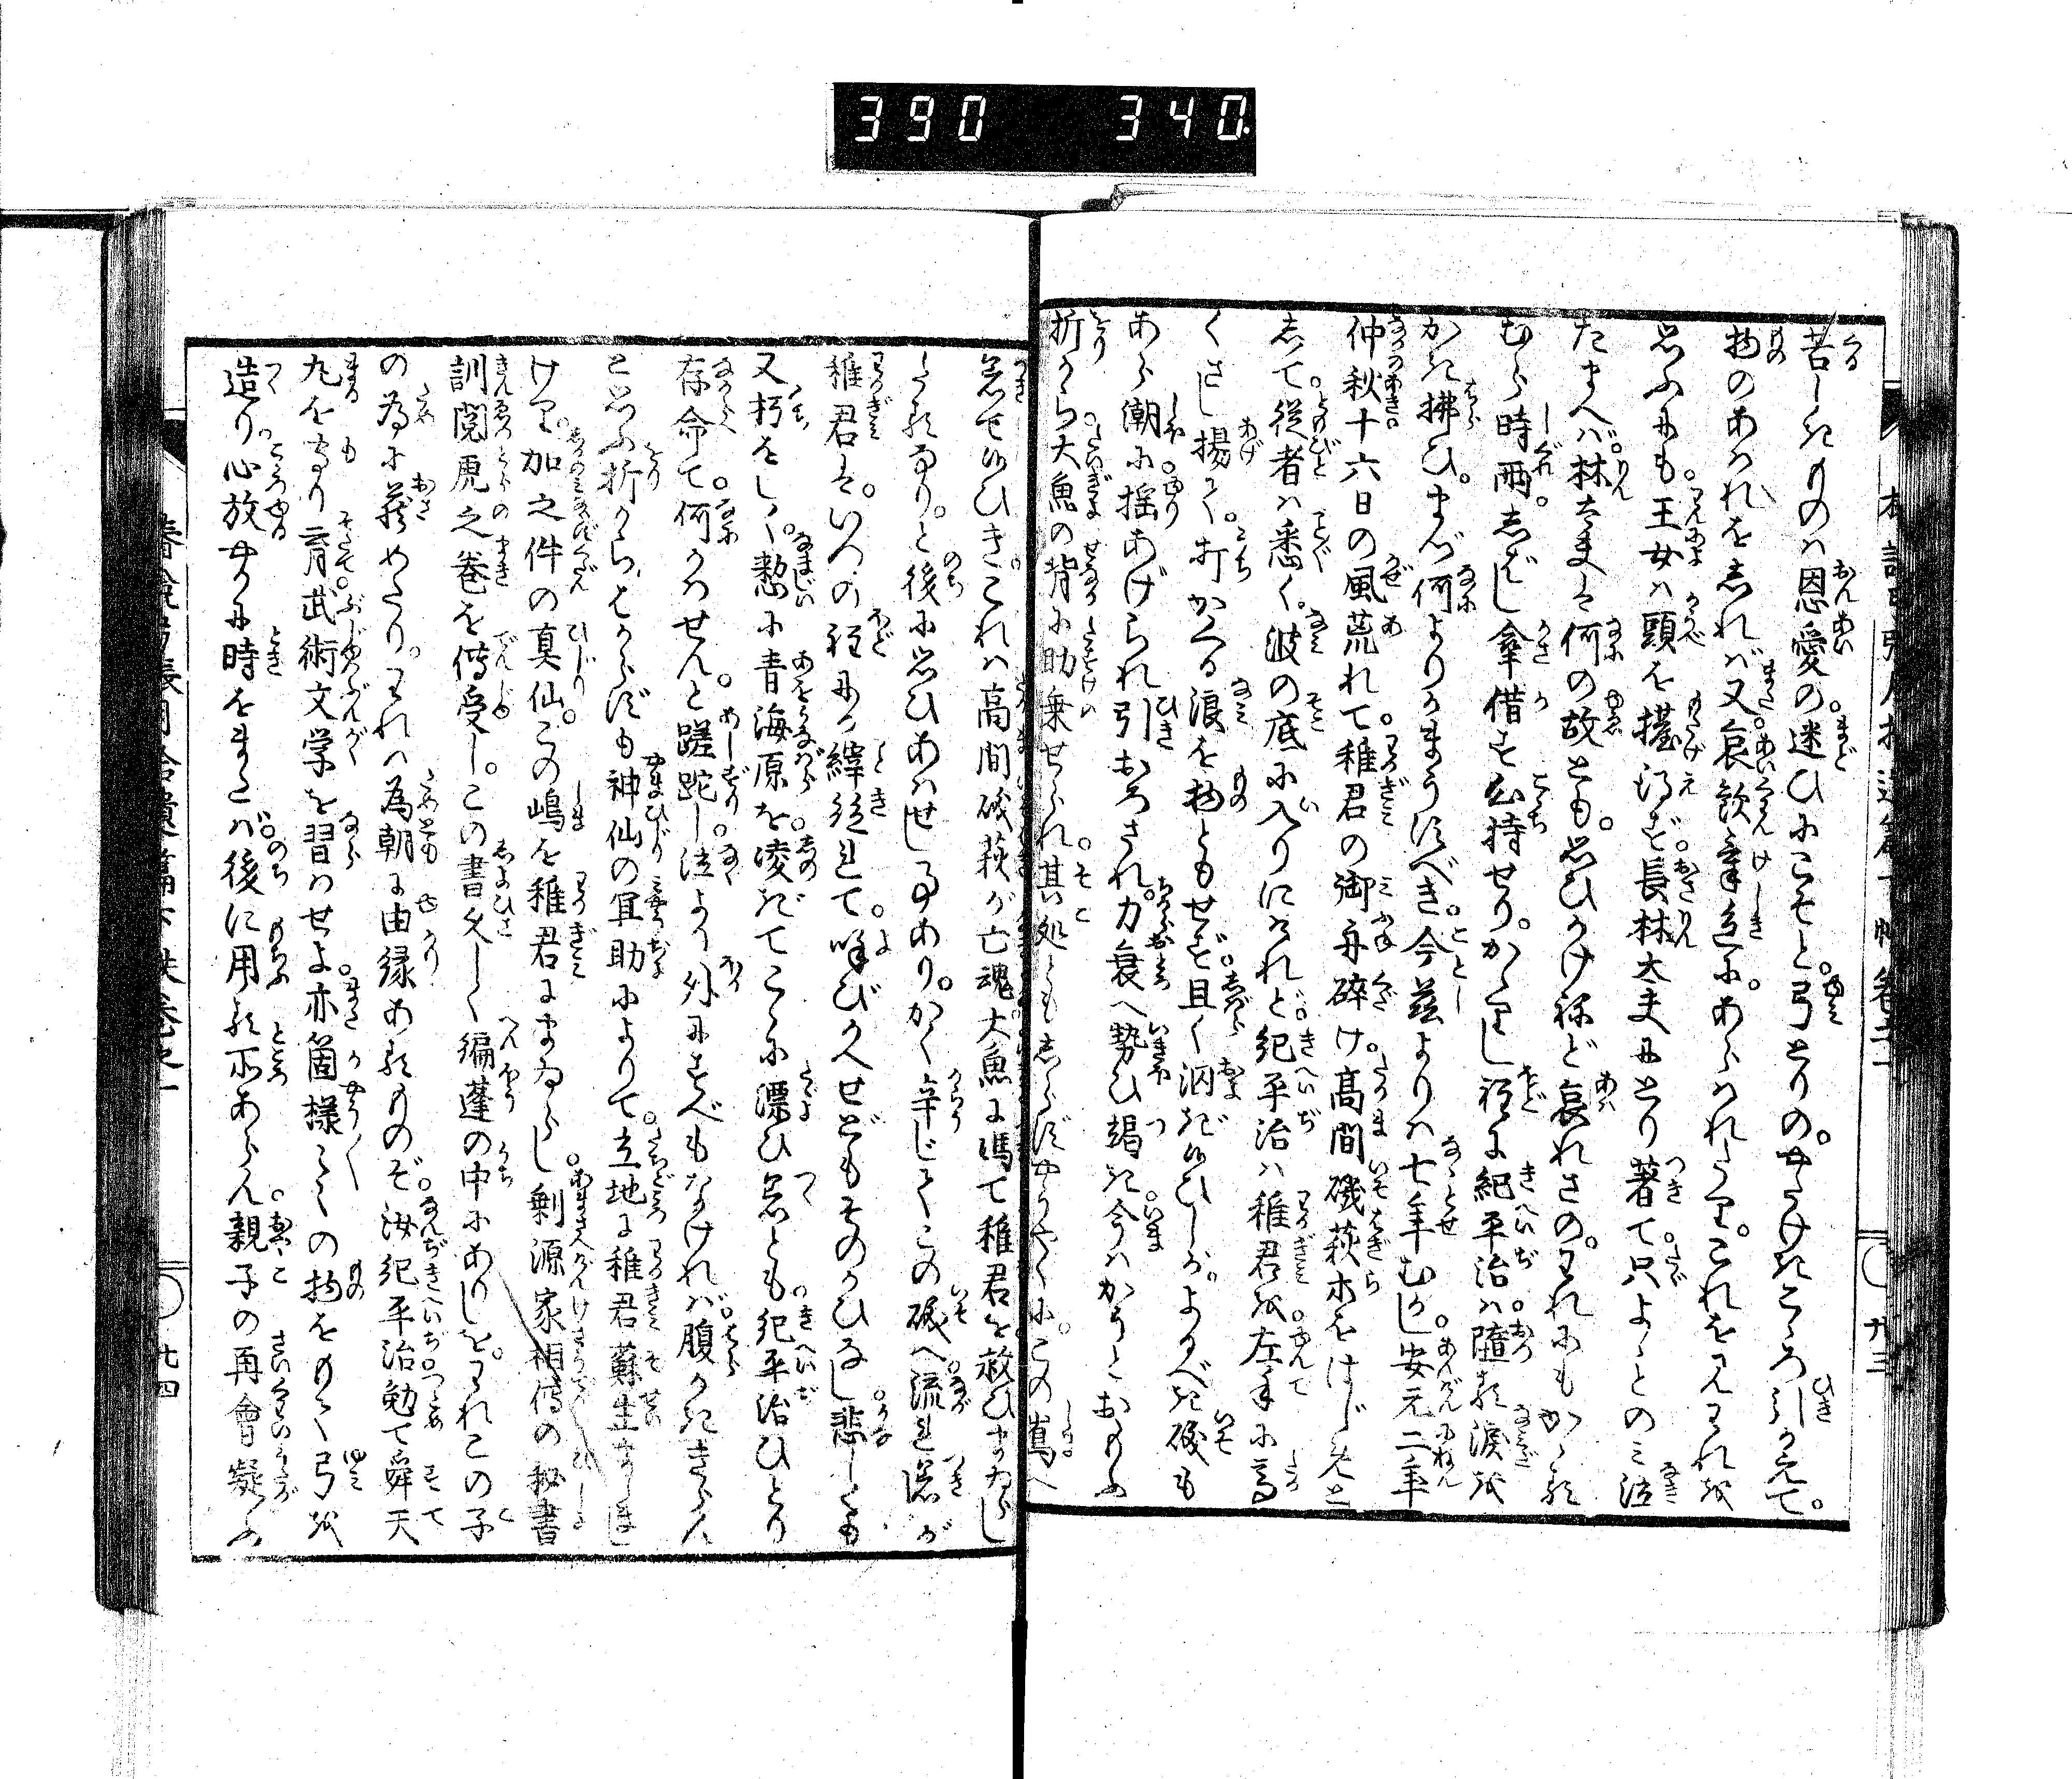 390 340
苦しきものは恩愛の。迷ひにこそと。弓とりの。やたけきこゝろ引かえて。
物のあはれをしれば又。哀歓気色に。あらはれたり。これを見われを
思ふにも。王女は頭を擡得ず。長林太夫にとり著て。只よゝとのみ泣
たまへば。林太夫は何の故とも。思ひかけねど哀れさの。われにもかゝる
むら時雨。しばし傘借す心持せり。かくりし程に紀平治は。堕る涙を
かき拂ひ。まづ何よりかまうすべき。今茲よりは七年むかし。安元二年
仲秋。十六日の風荒れて。稚君の御舟碎け。高間磯萩等をはじめと
して。従者は悉く。波の底に入りにけれど。紀平治は稚君を。左手に高
くさし揚て。打かへる浪を物ともせず。且く泅ぎ候ひしが。よるべき磯も
あら潮に。揺あげられ引おろされ。力衰へ勢ひ竭き。今はかうとおもふ
折から。大魚の背に助乗せられ。其処ともしらずやうやくに。この嶌へ
着て候ひき。これは高間磯萩が亡魂。大魚に馮て稚君を救ひまゐらし
たるなり。と後に思ひあはせし事あり。かく辛じてこの磯へ。流れ着が
稚君は。いつの程にか縡絶れて。呼びかへせどもそのかひなし。悲しくも
又朽をしく。憖に青海原を。凌ぎてこゝに漂ひ着とも。紀平治ひとり
存命て。何かはせんと。蹉跎し。泣より外にすべもなければ。腹かききらん
と思ふ折から。はからずも神仙の冥助によりて。立地に稚君蘇生ましまし
けり。加之件の真仙。この嶋を稚君にまゐらし。剰源家相傳の秘書
訓閲虎之巻を傳受し。この書久しく編蓬の中にありしを。われこの子
の為に蔵めたり。われは為朝に由縁あるものぞ。汝紀平治。勉て舜天
丸をもり育。武術文学を習はせよ。亦箇様々々の物をもて弓を
造り。心放せずに時をまたば。後に用る所あらん。親子の再會疑ふ
九三
九四